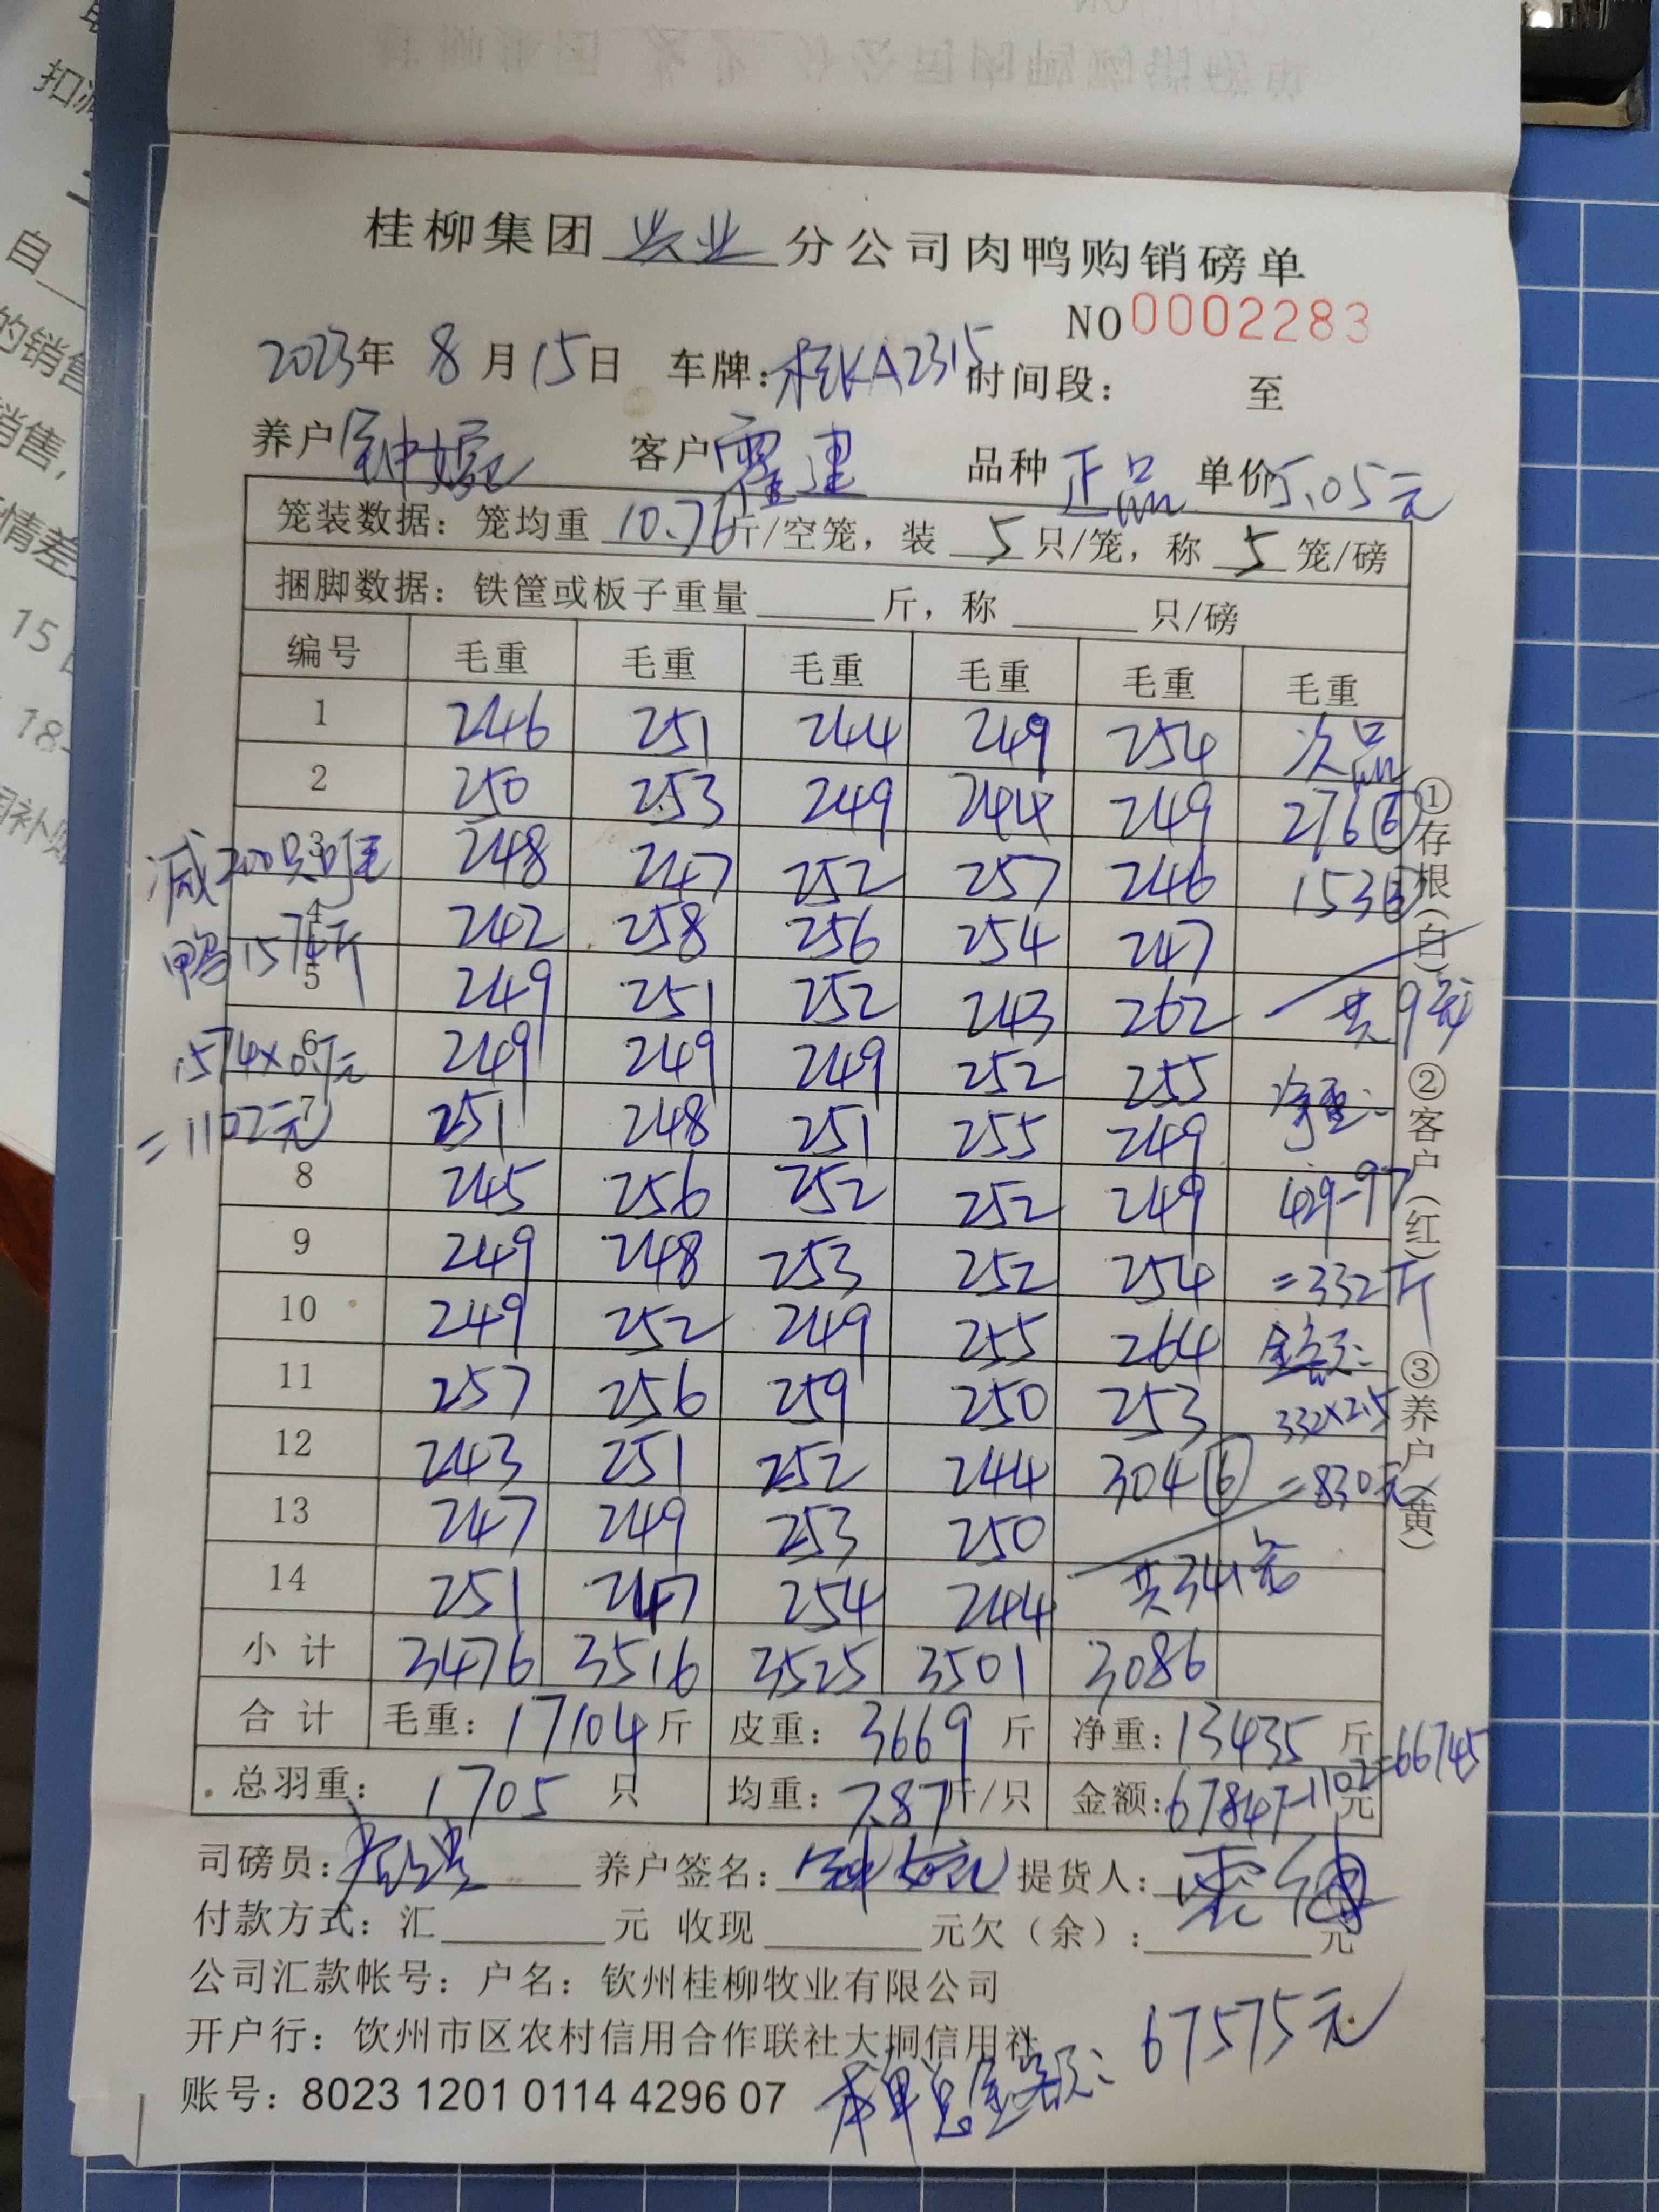 桂柳集团 兴业 分公司肉鸭购销磅单
NO 0002283
2023年 8月15日 车牌:桂KA2315 时间段: 至
养户 客户 品种 正品 单价5.05元
笼装数据:笼均重 10.76斤/空笼,装 5 只/笼,称 5 笼/磅
捆脚数据:铁筐或板子重量 斤,称 只/磅
编号 毛重 毛重 毛重 毛重 毛重 毛重
1 246 251 244 249 254 次品
2 250 253 249 244 249 276⑥
3 248 247 252 257 246 153③
4 242 258 256 254 247
5 249 251 252 243 262 共9笼
6 249 249 249 252 255 净重:
7 251 248 251 255 249
8 245 256 252 252 249 429-97
9 249 248 253 252 254 =332斤
10 249 252 249 255 264 金额:
11 257 256 259 250 253 332×2.5
12 243 251 252 244 304⑥ =830元
13 247 249 253 250
14 251 247 254 244 共341笼
小计 3476 3516 3525 3501 3086
合计 毛重:17104斤 皮重:3669斤 净重:13435斤
总羽重:1705只 均重:7.87斤/只 金额:67847-1102=66745元
减200只
鸭1574斤
1574×0.7元
=1102元
①存根(白) ②客户(红) ③养户(黄)
司磅员: 养户签名: 提货人:
付款方式:汇 元 收现 元欠(余): 元
公司汇款帐号:户名:钦州桂柳牧业有限公司
开户行:饮州市区农村信用合作联社大垌信用社
账号:8023 1201 0114 4296 07 本单总金额:67575元
扣减
自
的销售
销售,
情差
15日
18-
补贴